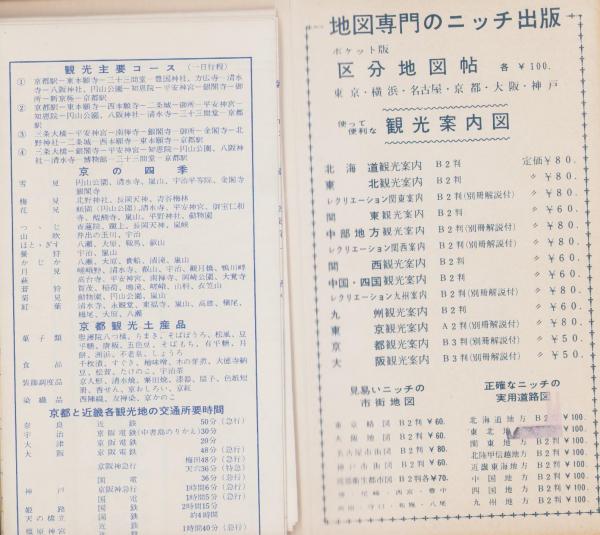 観光主要コース (一日行程)
① 京都駅―東本願寺―三十三間堂―豊国神社、方広寺―清水
寺―八阪神社、円山公園―知恩院―平安神宮―銀閣寺―御
所―新京極―京都駅
② 京都駅―東本願寺―西本願寺―二条城―御所―平安神宮―
知恩院―円山公園、八阪神社―清水寺―三十三間堂―京都
駅
③ 三条大橋―平安神宮―南禅寺―銀閣寺―御所―金閣寺―北
野神社―二条城―西本願寺―東本願寺―京都駅
④ 三条大橋―銀閣寺―平安神宮―知恩院―円山公園、八阪神
社―清水寺―博物館―三十三間堂―京都駅
京の四季
雪見 円山公園、清水寺、嵐山、宇治平等院、金閣寺
銀閣寺
梅見 北野神社、長岡天神、青谷梅林
花見 祇園(円山公園)清水寺、平安神宮、御室仁和
寺、醍醐寺、嵐山、平野神社、動物園
つつじ 蹴上、長岡天神、嵐峡
山吹 井出の玉川、宇治
ほととぎす 八瀬、大原、鞍馬、叡山
螢狩 宇治、嵐山
かじか 八瀬、大原、貴船、清滝、嵐山
月見 嵯峨野、清水寺、叡山、宇治、観月橋、鴨川畔
萩 高台寺、平安神宮、南禅寺、詩仙堂、大覚寺
茸狩 鞍馬、稲荷、鳴滝、嵯峨、山科、衣笠山
菊見 動物園、円山公園、嵐山
紅葉 清水寺、永観堂、東福寺、嵐山、高雄、槇尾、
栂尾、大原、八瀬
京都観光土産品
菓子類 聖護院八つ橋、ちまき、そばぼうろ、松風、豆
平糖、唐板、五色豆、そばもち、有平糖、月
餅、洲浜、不老泉、しょうろ
食品 千枚漬、すぐき、柚味噌、木の芽煮、大徳寺納
豆、松茸、たけのこ、宇治茶
装飾調度品 京人形、清水焼、粟田焼、漆器、扇子、色紙短
冊、香せん、京おしろい、京紅
染織品 西陣織、友禅染、京かのこ
京都と近畿各観光地の交通所要時間
奈良 近鉄 50分(急行)
宇治 京阪電鉄(中書島のりかえ)30分
大津 京阪電鉄 20分
大阪 京阪電鉄 48分(急行)
京阪神急行 梅田48分(急行)
天六36分(特急)
国電 36分(急行)
神戸 京阪神急行 1時間6分(急行)
国電 1時間5分(急行)
姫路 国鉄 2時間15分
天の橋立 国鉄 約4時間
橿原神宮 近鉄 1時間40分(急行)
地図専門のニッチ出版
ポケット版
区分地図帖 各 ¥100.
東京・横浜・名古屋・京都・大阪・神戸
使って
便利な 観光案内図
北海道観光案内 B2判 定価¥80.
東北観光案内 B2判 〃 ¥80.
レクリエーション関東案内 B2判(別冊解説付) 〃 ¥80.
関東観光案内 B2判 〃 ¥60.
中部地方観光案内 B2判(別冊解説付) 〃 ¥80.
レクリエーション関西案内 B2判(別冊解説付) 〃 ¥80.
関西観光案内 B2判 〃 ¥60.
中国・四国観光案内 B2判 〃 ¥60.
レクリエーション九州案内 B2判(別冊解説付) 〃 ¥80.
九州観光案内 B2判 〃 ¥60.
東京観光案内 A2判(別冊解説付) 〃 ¥80.
京都観光案内 B3判(別冊解説付) 〃 ¥50.
大阪観光案内 B3判(別冊解説付) 〃 ¥50.
見易いニッチの
市街地図
東京精図 B2判 ¥60.
大阪地図 B2判 ¥60.
名古屋市街図 B2判 ¥80.
神戸市街図 B2判 ¥60.
衛生都市図 B2判各¥70.
尼崎・西宮・豊中
守口・布施・八尾
正確なニッチの
実用道路図
北海道地方 B2 ¥100.
東北地 ¥100.
関東地方 B2判 ¥100.
北陸甲信越地方 B2判 ¥100.
近畿東海地方 B2判 ¥100.
中国地方 B2判 ¥100.
四国地方 B2判 ¥100.
九州地方 B2判 ¥100.